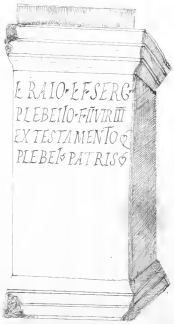 L·RAIO·L·F·SERG·
PLEBEIIO·F·IIVIR III
EX TESTAMENTO
PLEBEI PATRIS